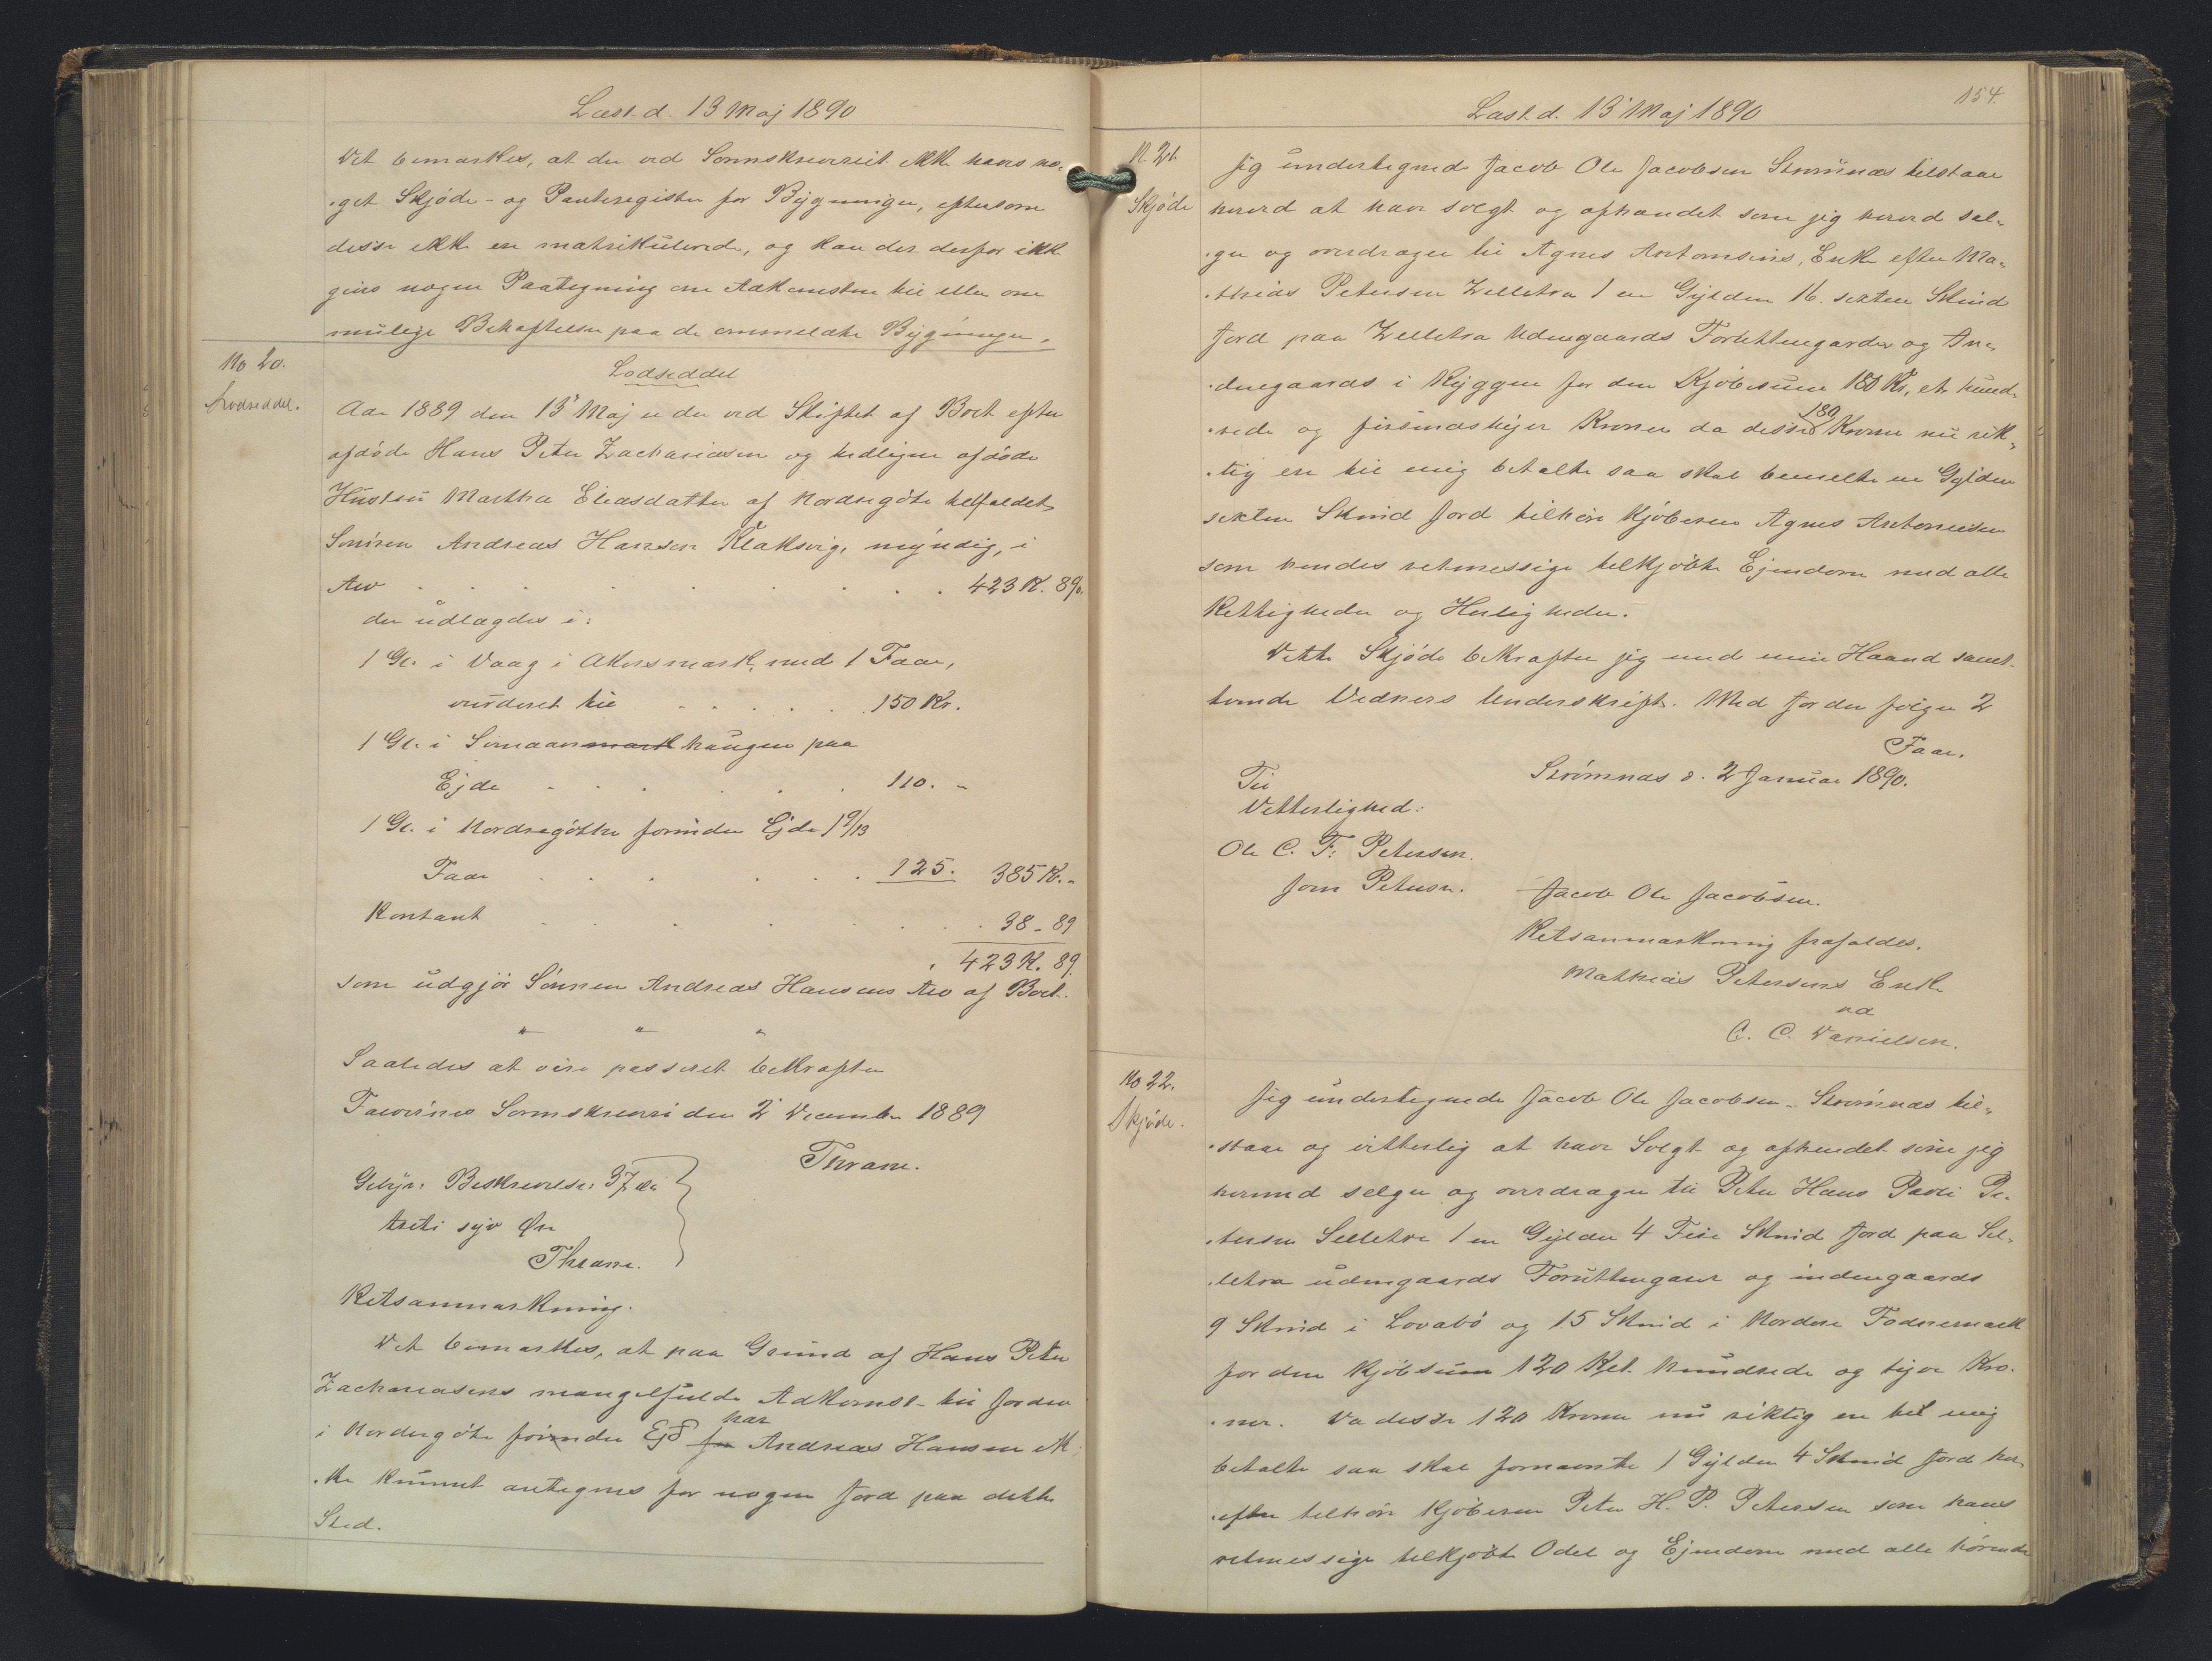 Læst d. 13 Maj 1890
Det bemærkes, at der ved Sorenskriveriet ikke haves no-
get Skjöde- og Panteregister for Bygninger, eftersom
disse ikke ere matrikulerede, og kan der derfor ikke
gives nogen Paategning om Adkomsten til eller om
mulige Behæftelser paa de ommeldte Bygninger.
No 20.
Lodseddel.
Lodseddel
Aar 1889 den 13' Maj er der ved Skiftet af Boet efter
afdöde Hans Peter Zachariasen og tidligere afdöde
Hustru Martha Eliasdatter af Nordregöte tilfaldet
Sönnen Andreas Hansen Klaksvig, myndig, i
Arv . . . . . . . 423 K. 89.
der udlægdes i:
1 Gl. i Vaag i Akersmark, med 1 Faar,
vurderet til . . . . . 150 Kr.
1 Gl. i Simaarsmark haugen paa
Ejde . . . . . 110. -
1 Gl. i Nordregöthe forinden Ejde 1 9/13
Faar . . . . . 125. 385 K. -
Kontant . . . . . 38 - 89
423 K. 89
som udgjör Sönnen Andreas Hansens Arv af Boet.
" " "
Saaledes at være passeret bekræfter
Færöernes Sorenskriveri den 2' December 1889
Thrane.
Gebyr: Beskrivelse: 37 Øre
treti syv Øre
Thrane.
Retsanmærkning.
Det bemærkes, at paa Grund af Hans Peter
Zachariasens mangelfulde Adkomst til Jorden
i Nordregöte forinden Ejd for har Andreas Hansen ik-
ke kunnet antegnes for nogen Jord paa dette
Sted.
154.
Læst d. 13' Maj 1890
N. 21.
Skjöde
Jeg undertegnede Jacob Ole Jacobsen Strömnæs tilstaar
herved at have solgt og afhændet som jeg herved sæl-
ger og overdrager til Agnes Antonsens, Enke efter Ma-
thias Petersen Zelletræ 1 en Gylden 16. sexten Skind
Jord paa Zelletræ Udengaards Forlittengarder og In-
dengaards i Ryggen for den Kjöbesum 180 Kr, et hund-
rede og firsindstyer Kroner da disse 180 Kroner nu rik-
tig ere til mig betalte saa skal bemelte en Gylden
sexten Skind Jord tilhöre Kjöberen Agnes Antonsen
som hendes retmessige tilkjöbte Ejendom med alle
Rettigheder og Herligheder.
Dette Skjöde bekræfter jeg med min Haand samt
tvende Vidners Underskrift. Med Jorden fölger 2
Faar.
Strömnæs d. 2 Januar 1890.
Til
Vitterlighed:
Ole C. F: Petersen.
Joen Petersen.
Jacob Ole Jacobsen.
Retsanmærkning frafaldes.
Mathias Petersens Enke
ved
C. C. Danielsen.
No 22.
Skjöde.
Jeg undertegnede Jacob Ole Jacobsen - Strömnæs til-
staar og vitterlig at have Solgt og afhendet som jeg
hermed selger og overdrager til Peter Hans Pauli Pe-
tersen Selletræ 1 en Gylden 4 Fire Skind Jord paa Sel-
letræ udengaards Foruttengard og indengaards
9 Skind i Lovabö og 15 Skind i Nordere Fodnemark
for den Kjöbsum 120 Kr et hundrede og tyve Kro-
ner. Da disse 120 Kroner nu riktig ere til mig
betalte saa skal fornævnte 1 Gylden 4 Skind Jord her-
efter tilhöre Kjöberen Peter H. P. Petersen som hans
retmessige tilkjöbte Odel og Ejendom med alle hörende